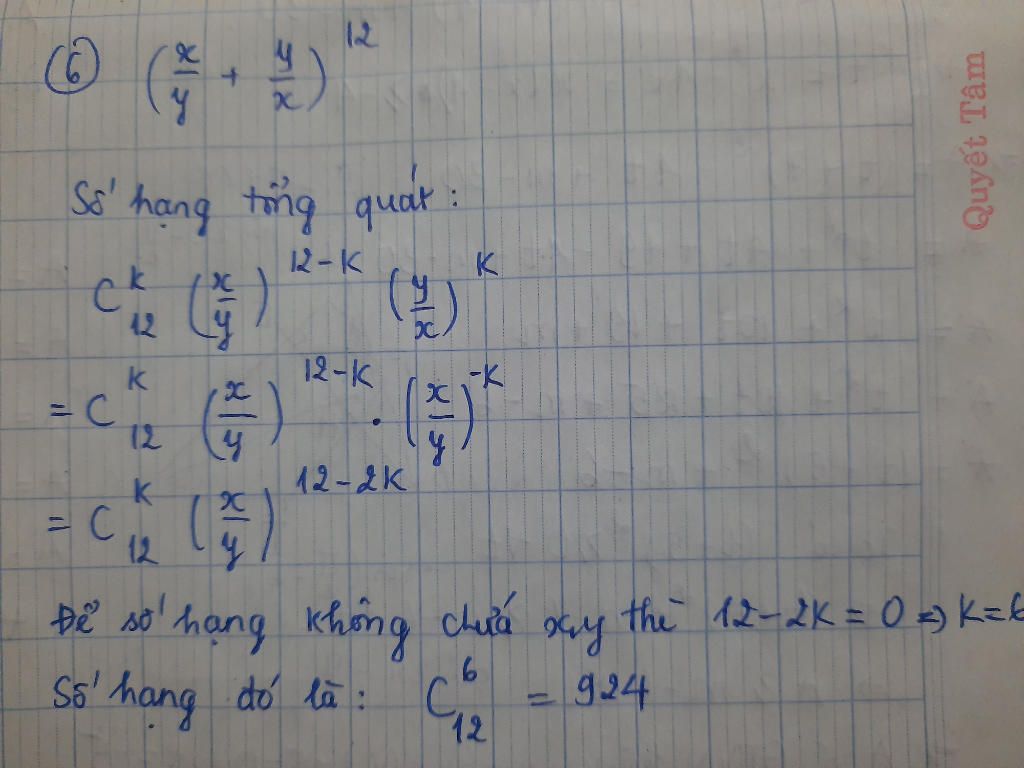 ⑥ (x/y + y/x)^12
Số hạng tổng quát:
C_12^K (x/y)^(12-K) (y/x)^K
= C_12^K (x/y)^(12-K) . (x/y)^(-K)
= C_12^K (x/y)^(12-2K)
Để số hạng không chứa x,y thì 12-2K = 0 => K=6
Số hạng đó là: C_12^6 = 924
Quyết Tâm